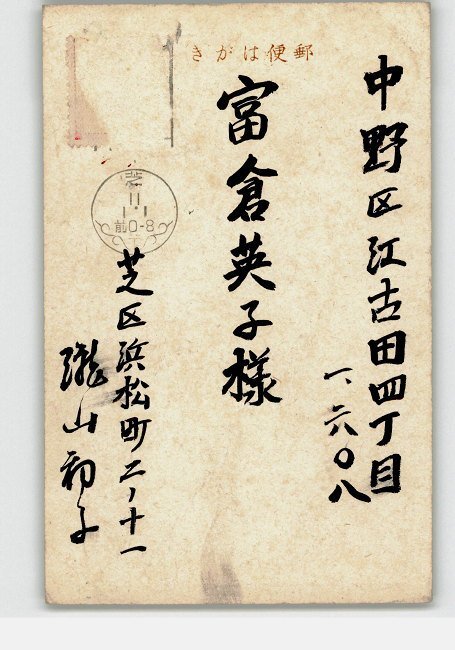 郵便はがき
中野区江古田四丁目
一、六〇八
富倉英子様
芝
11
1.1
前0-8
芝区浜松町二ノ十一
瀧山初子